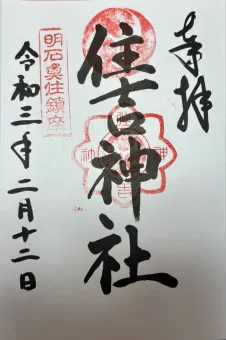 奉拝
住吉神社
明石魚住鎮座
令和三年二月十二日